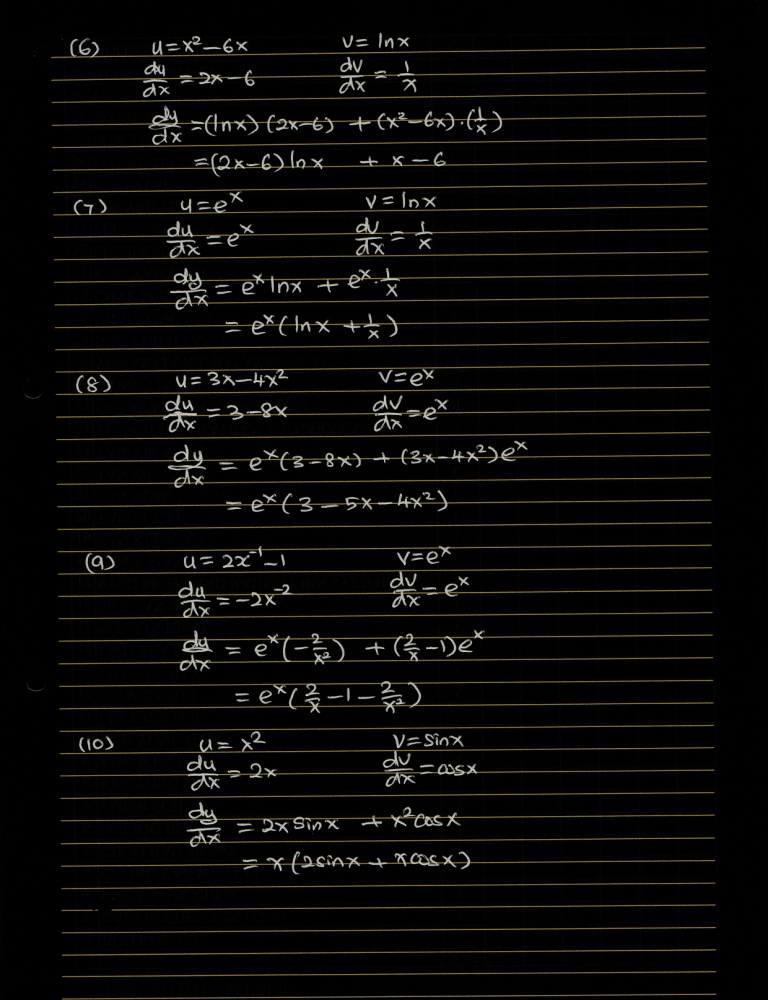 (6) u = x² − 6x v = ln x
du/dx = 2x − 6 dv/dx = 1/x
dy/dx = (ln x) (2x − 6) + (x² − 6x) · (1/x)
= (2x − 6) ln x + x − 6
(7) u = eˣ v = ln x
du/dx = eˣ dv/dx = 1/x
dy/dx = eˣ ln x + eˣ · 1/x
= eˣ (ln x + 1/x)
(8) u = 3x − 4x² v = eˣ
du/dx = 3 − 8x dv/dx = eˣ
dy/dx = eˣ (3 − 8x) + (3x − 4x²) eˣ
= eˣ (3 − 5x − 4x²)
(9) u = 2x⁻¹ − 1 v = eˣ
du/dx = −2x⁻² dv/dx = eˣ
dy/dx = eˣ (−2/x²) + (2/x − 1) eˣ
= eˣ (2/x − 1 − 2/x²)
(10) u = x² v = sin x
du/dx = 2x dv/dx = cos x
dy/dx = 2x sin x + x² cos x
= x (2 sin x + x cos x)